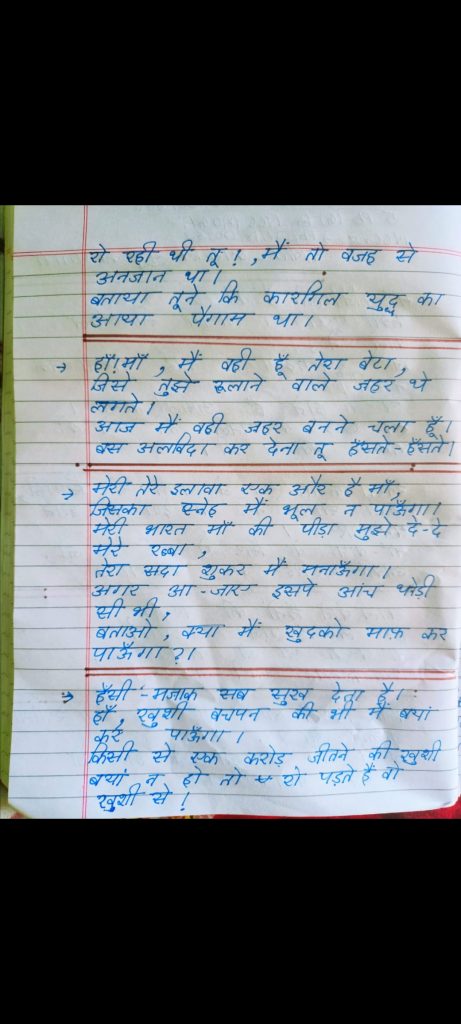 रो रही थी तू !, मैं तो वजह से
अनजान था।
बताया तूने, कि कारगिल युद्ध का
आया पैगाम था।
→ हाँ! माँ, मैं वही हूँ तेरा बेटा,
जिसे तुझे रूलाने वाले जहर थे
लगते।
आज मैं वही जहर बनने चला हूँ।
बस अलविदा कर देना तू हँसते-हँसते।
→ मेरी तेरे इलावा एक और है माँ,
जिसका स्नेह मैं भूल न पाऊँगा।
मेरी भारत माँ की पीड़ा मुझे दे-दे
मेरे रब्बा,
तेरा सदा शुकर मैं मनाऊँगा।
अगर आ-जाए इसपे आंच थोड़ी
सी भी,
बताओ, क्या मैं खुदको माफ़ कर
पाऊँगा?।
→ हँसी-मजाक सब सुख देता है।
हाँ, खुशी बचपन की भी मैं बयां
कर पाऊँगा।
किसी से एक करोड़ जीतने की खुशी
बयां न हो तो रो पड़ते हैं वो
खुशी से!